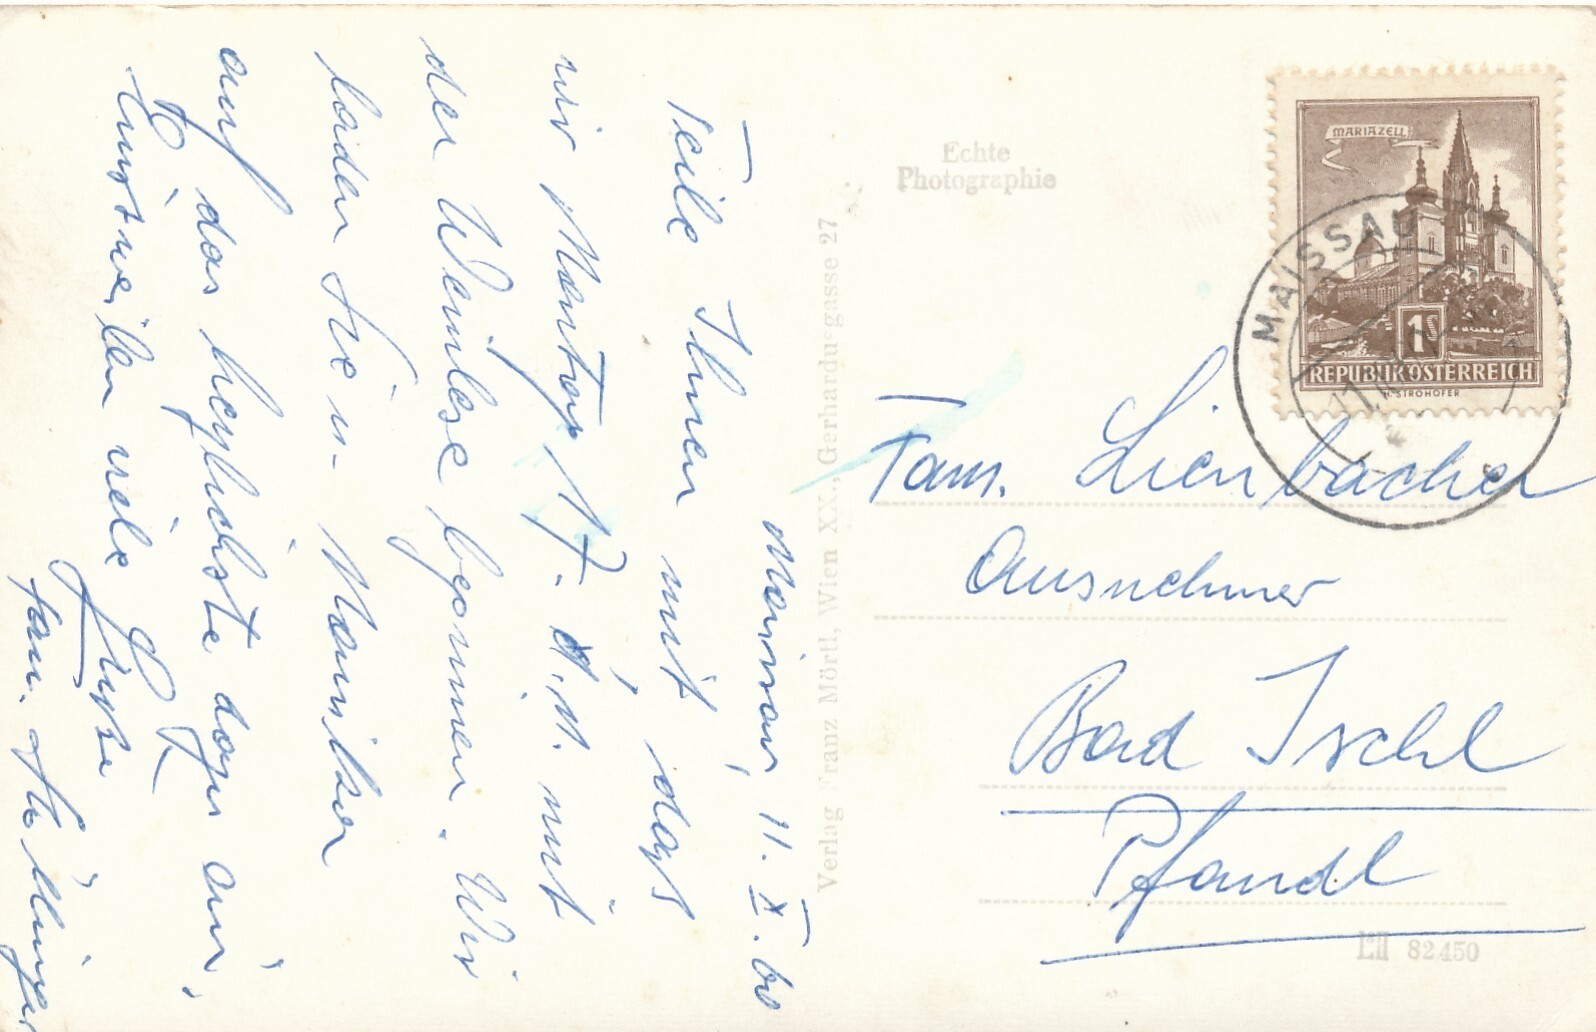 Maissau, 11. X. 60
Teile Ihnen mit, dass
wir Montag 17. d. M. mit
der Weinlese beginnen. Wir
laden Sie u.
auf das herzlichste dazu ein.
Einstweilen viele Grüße
Fam.
Echte
Photographie
Verlag Franz Mörtl, Wien XX., Gerhardusgasse 27
MARIAZELL
1S
REPUBLIK ÖSTERREICH
H. STROHOFER
MAISSAU
Fam. Lienbacher
Ausnehmer
Bad Ischl
Pfandl
82450